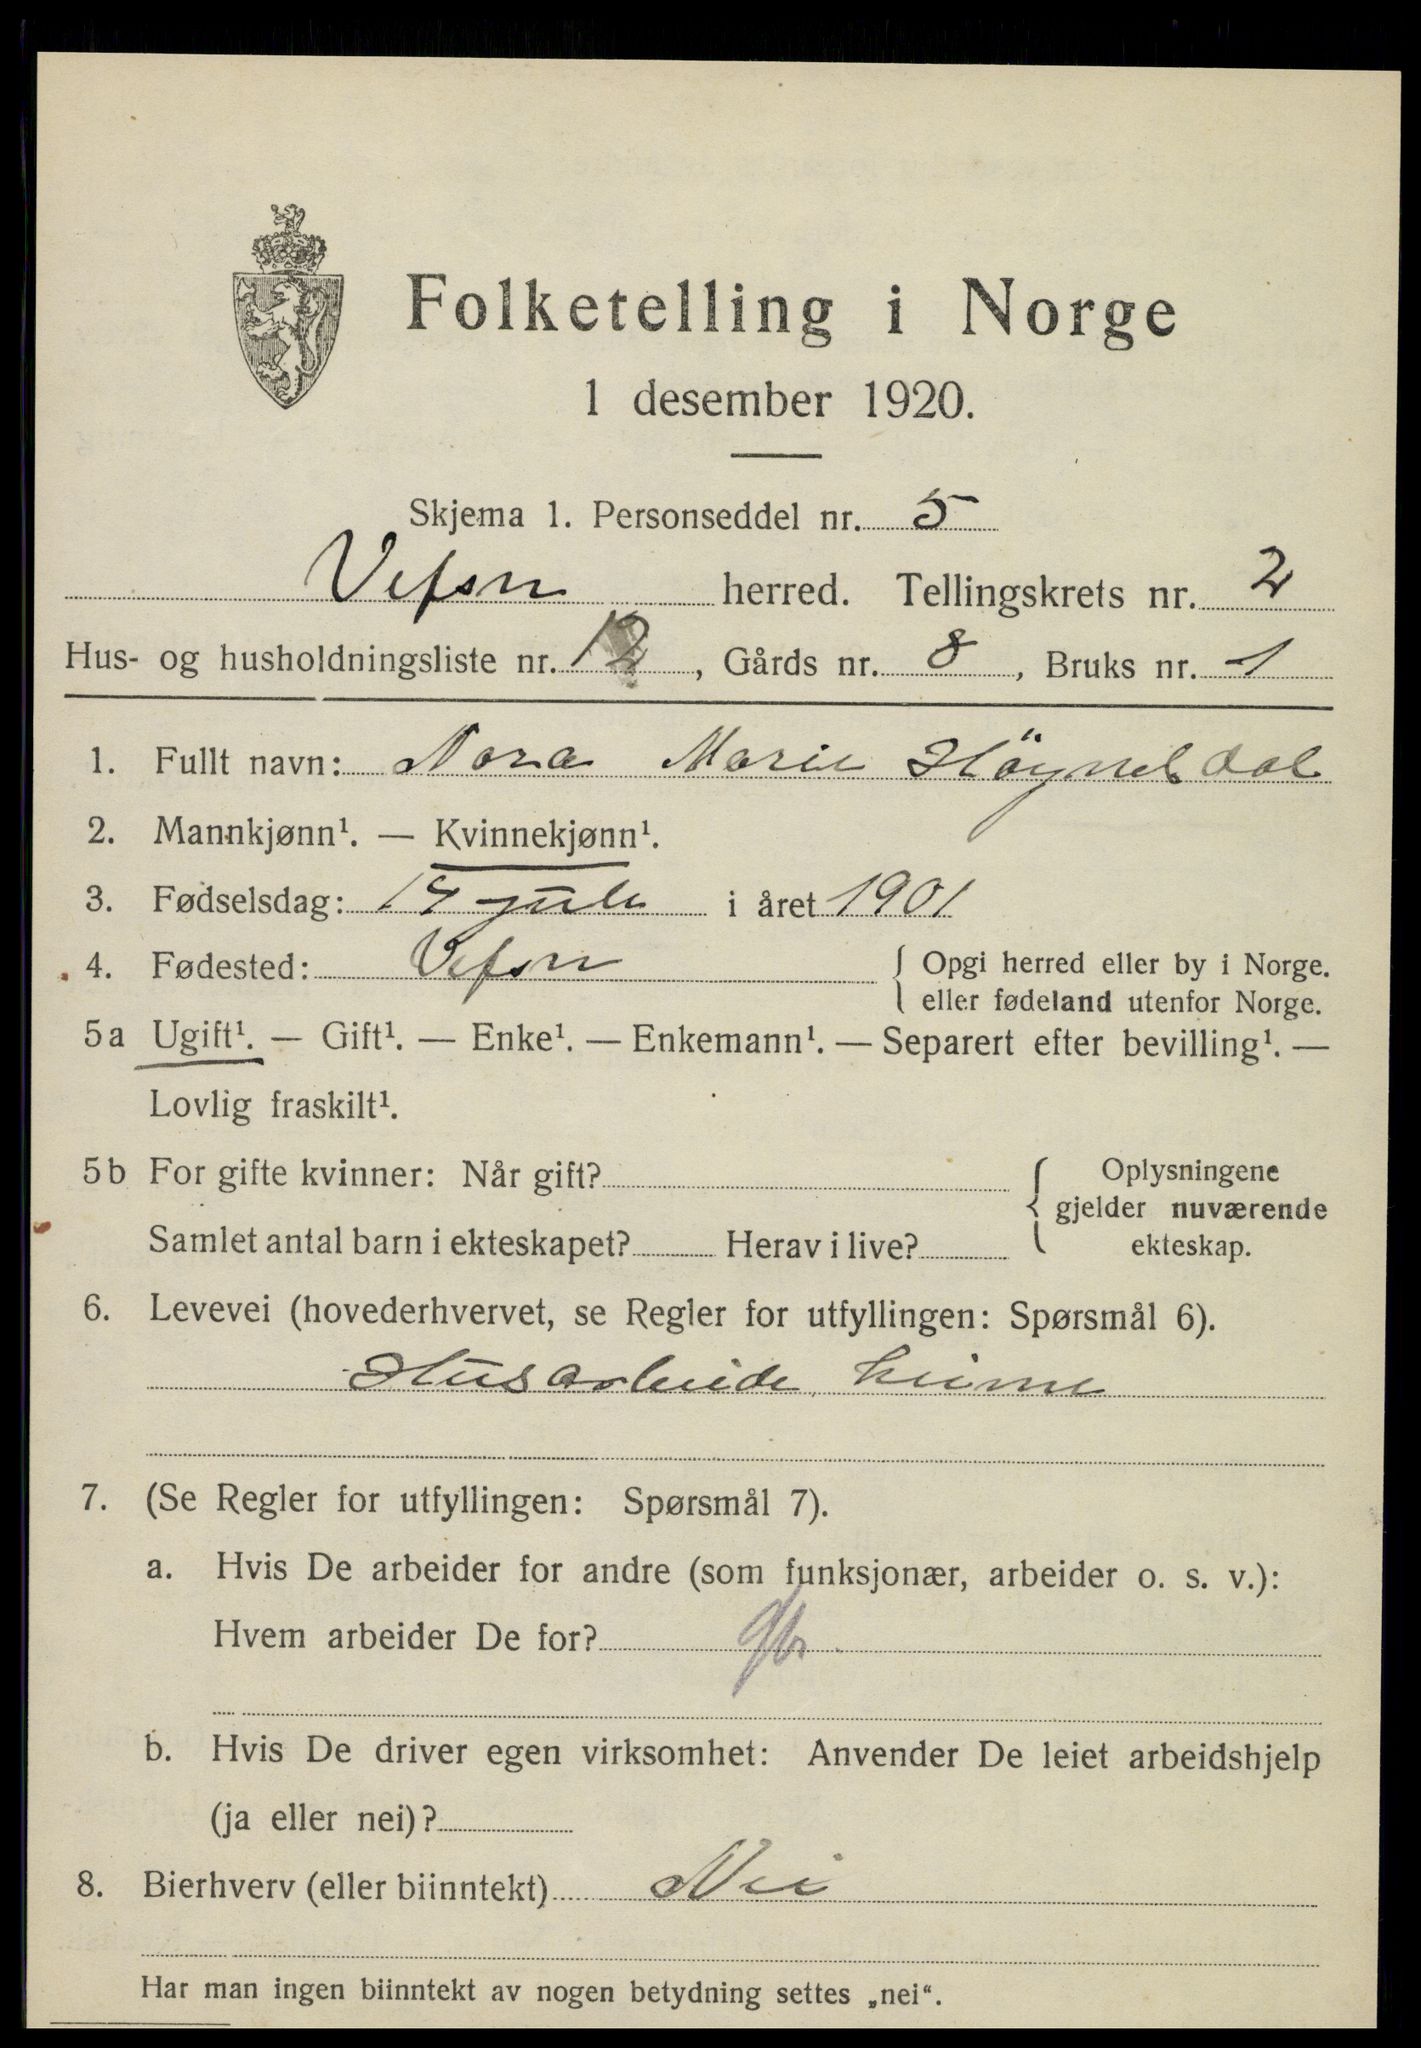 Folketelling i Norge
1 desember 1920.
Skjema 1. Personseddel nr. 5
Vefsn herred. Tellingskrets nr. 2
Hus- og husholdningsliste nr. 12, Gårds nr. 8, Bruks nr. 1
1. Fullt navn: Nora Marie Höynesdal
2. Mannkjønn¹. — Kvinnekjønn¹.
3. Fødselsdag: 14 juli i året 1901
4. Fødested: Vefsn { Opgi herred eller by i Norge.
eller fødeland utenfor Norge.
5a Ugift¹. — Gift¹. — Enke¹. — Enkemann¹. — Separert efter bevilling¹. —
Lovlig fraskilt¹.
5b For gifte kvinner: Når gift? { Oplysningene
gjelder nuværende
Samlet antal barn i ekteskapet? Herav i live? ekteskap.
6. Levevei (hovederhvervet, se Regler for utfyllingen: Spørsmål 6).
Husarbeide, heime
7. (Se Regler for utfyllingen: Spørsmål 7).
a. Hvis De arbeider for andre (som funksjonær, arbeider o. s. v.):
Hvem arbeider De for?
b. Hvis De driver egen virksomhet: Anvender De leiet arbeidshjelp
(ja eller nei)?
8. Bierhverv (eller biinntekt) Nei
Har man ingen biinntekt av nogen betydning settes „nei“.